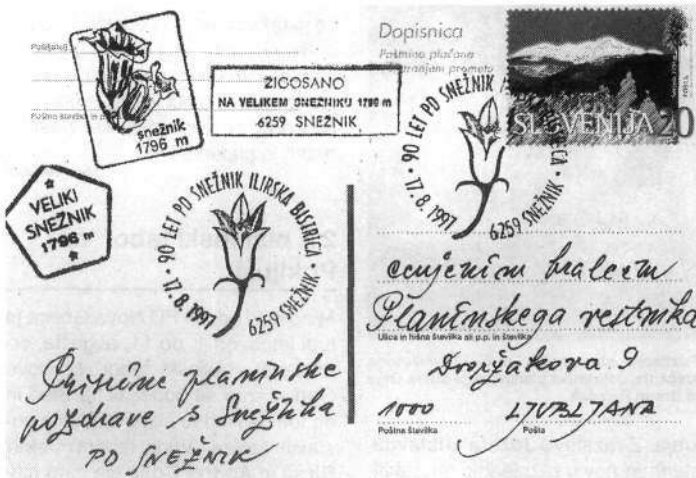 Pošiljatelj
Poštna številka in p
snežnik
1796 m
ŽIGOSANO
NA VELIKEM SNEŽNIKU 1796 m
6259 SNEŽNIK
VELIKI
SNEŽNIK
1796 m
· 90 LET PD SNEŽNIK ILIRSKA BISTRICA ·
17.8.1997
6259 SNEŽNIK
Prisrčne planinske
pozdrave s Snežnika
PD SNEŽNIK
Dopisnica
Poštnina plačana
notranjem prometu
SLOVENIJA 20
· 90 LET PD SNEŽNIK BISTRICA ·
17.8.1997
6259 SNEŽNIK
cenjenim bralcem
Planinskega vestnika
Ulica in hišna številka ali p.p. in številka
Dvoržakova 9
1000 LJUBLJANA
Poštna številka Pošta